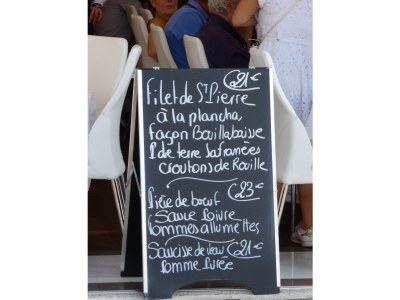 21€
Filet de St Pierre
à la plancha,
façon Bouillabaisse
P de terre Safranées
croutons de Rouille
Pièce de bœuf 23€
Sauce Poivre
Pommes allumettes
Saucisse de veau 21€
Pomme Purée